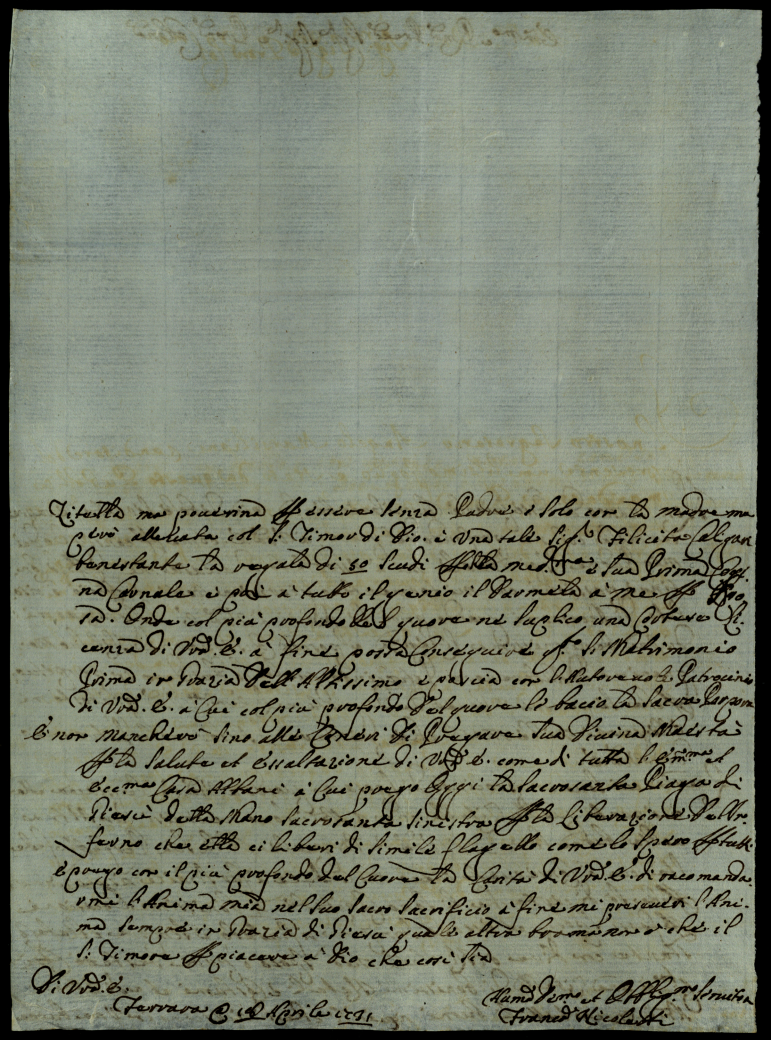 Zitella ma poverina p essere senza Padre e solo con la madre ma
però allevata col S. Timor di Dio. e una tale Sig.ra Felicita
benestante la regala di 50 Scudi p med.ma e sua Prima
na Carnale e poi à tutto il genio il Darmela à me p
Onde col più profondo del quore ne suplico una
cenza di V.ra E. à fine possa Conseguire q.to S. Matrimonio
Prima in Grazia dell'Altissimo e poscia con l' Patrocinio
di V.ra. E. à Cui col più profondo del quore le bacio la Sacra Porpora
E non mancherò sino alle Ceneri di Pregare Sua Divina Maestà
p la salute et Essaltazione di V.ra E. come di tutta l' Em.ma et
Ecc.ma Casa Albani à Cui prego Oggi la Sacrosanta Piaga di
Giesù della Mano Sacrosanta sinistra p la Liberazione dell' In:
ferno che ella ci liberi di simile flagello come lo spero p tutti
e prego con il più profondo del Cuore la Carità di V.ra. E. di racomanda:
rmi l'Anima mia nel suo Sacro Sacrificio à fine mi preservi l'Ani:
ma sempre in Grazia di Giesù altro bramo non è che il
S. Timore p piacere à Dio che così sia
Di V.ra. E.
Ferrara Aprile
Hum.o Dev.mo et Obblig.mo Servitor
Franc.o Nicoletti